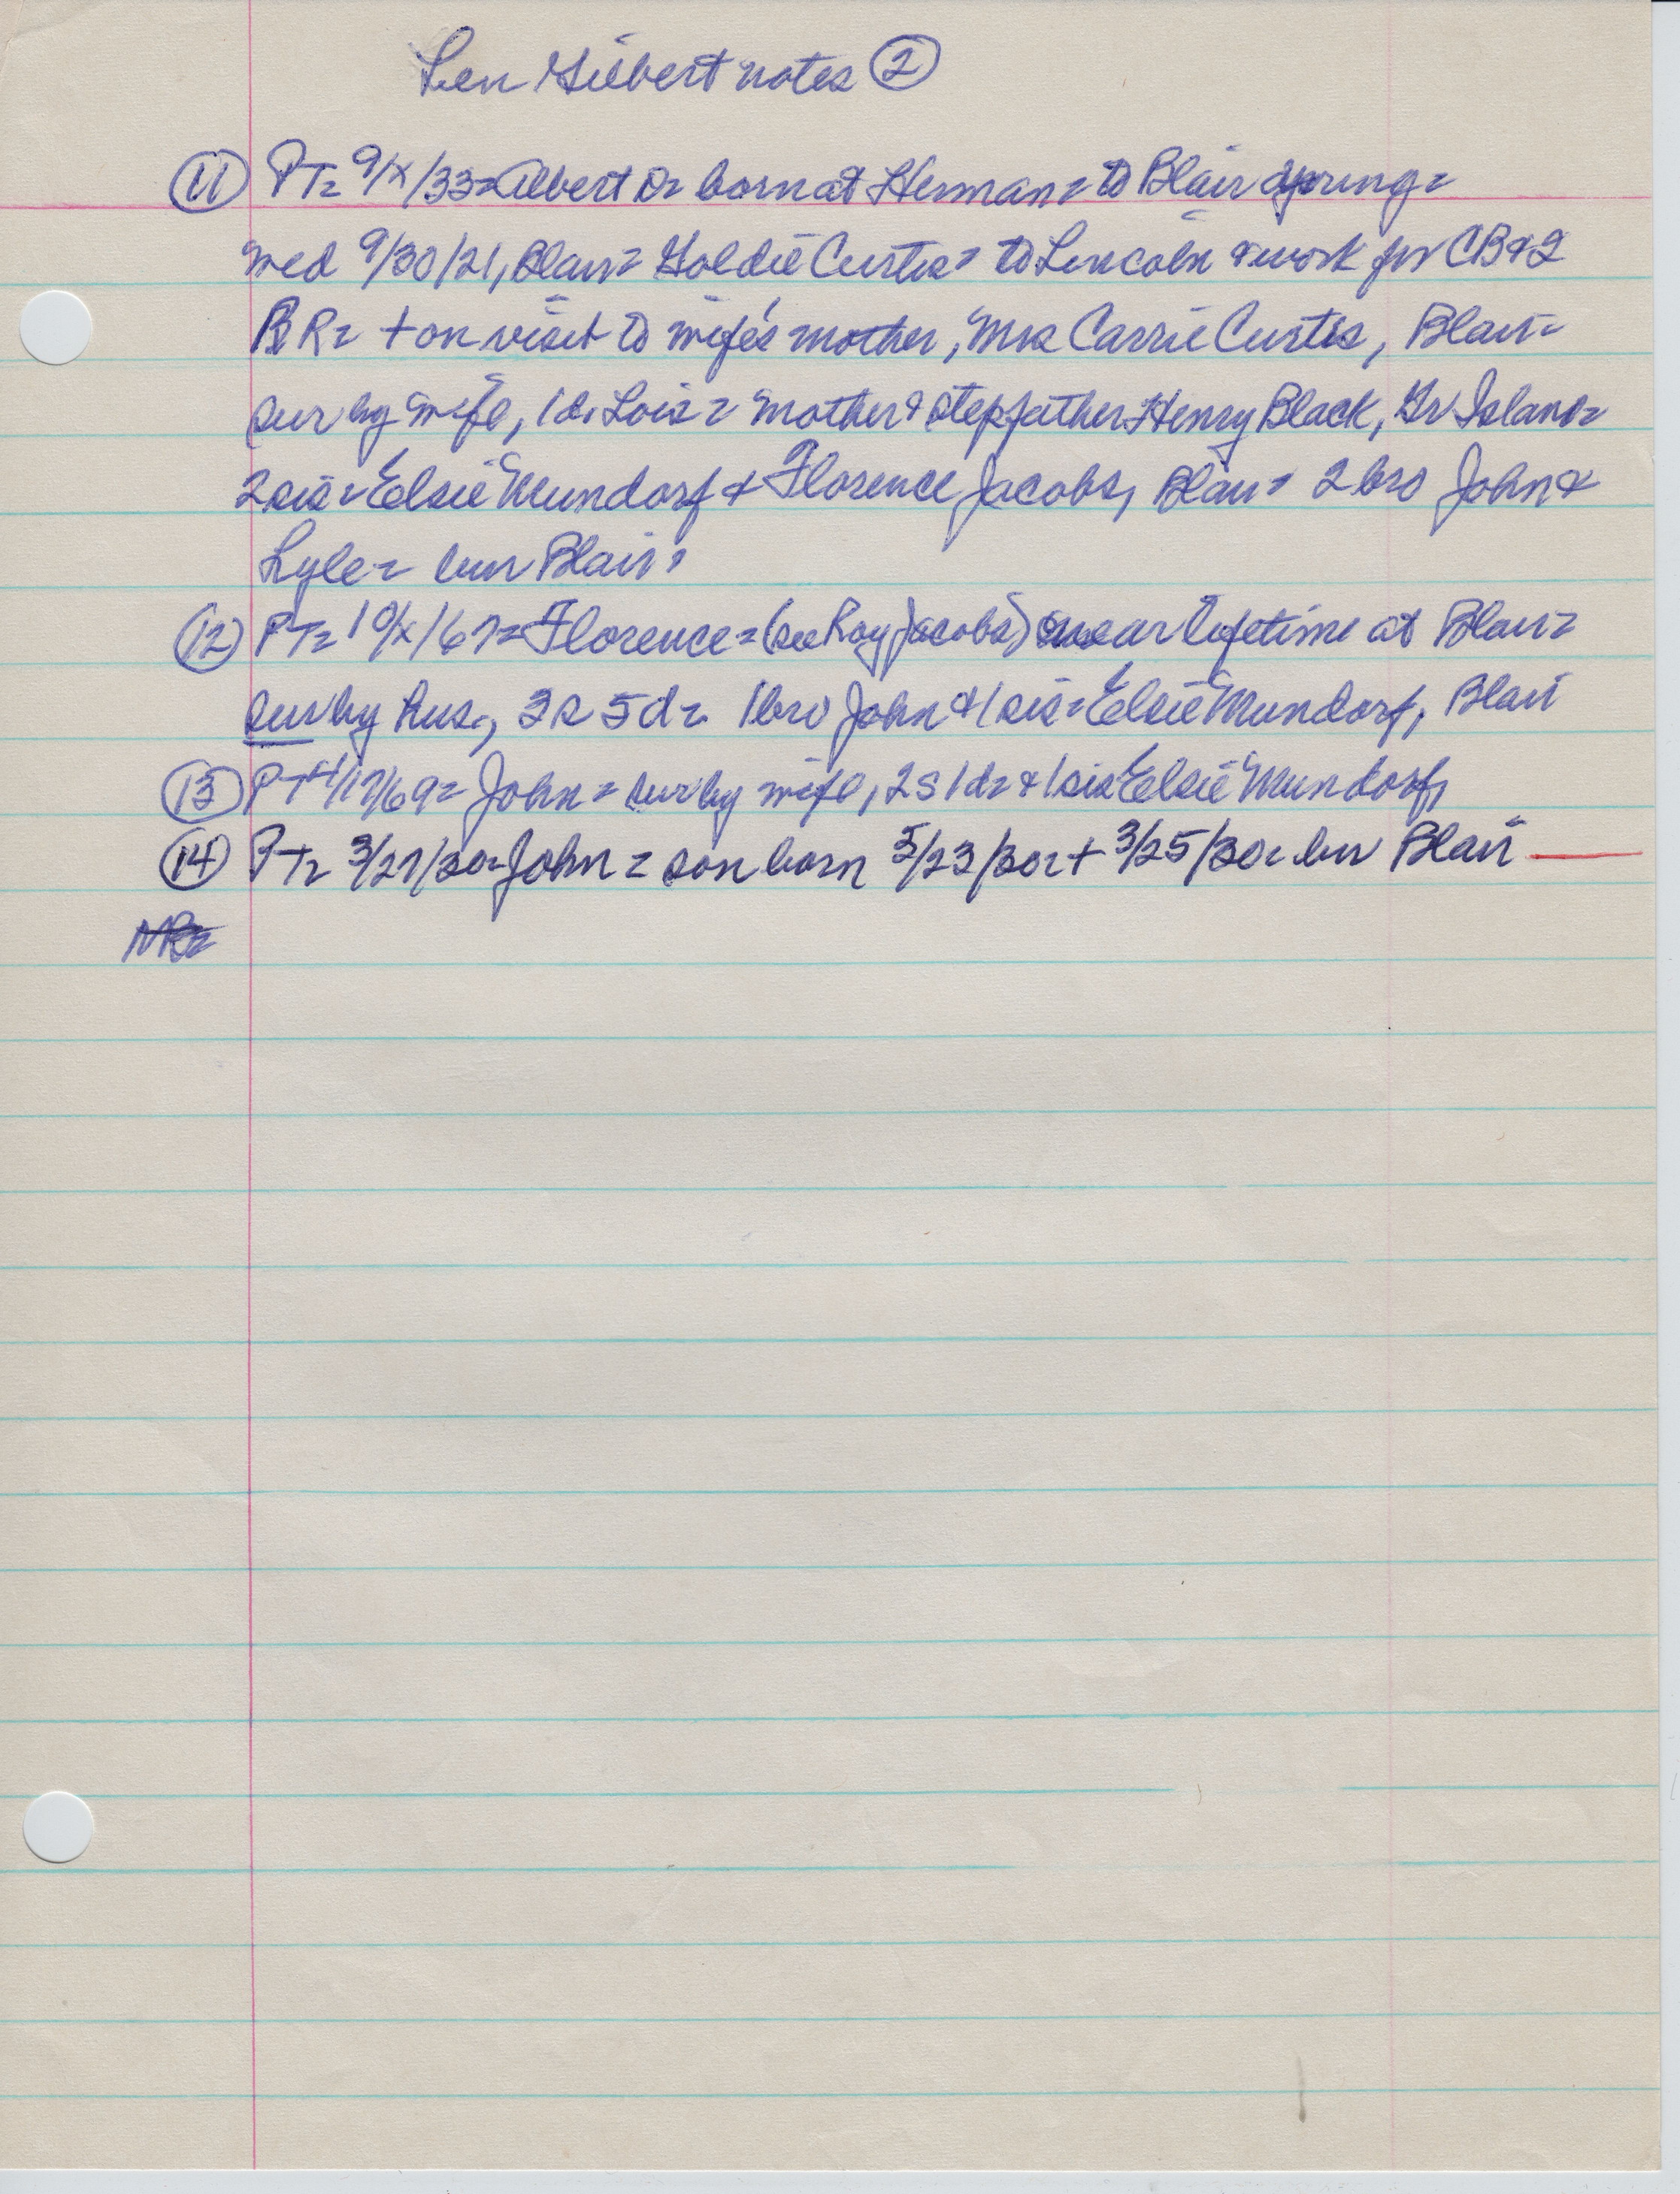 Len Siebert notes ②
⑪ PT= 9/x/33= Albert D= born at Herman= to Blair young=
med 9/30/21, Blair= Goldie Curtis= to Lincoln & work for CB&Q
RR= + on visit to wife's mother, Mrs Carrie Curtis, Blair=
sur by wife, 1d. Lois= mother & stepfather Henry Black, Gr Island=
2 sis= Elsie Mundorf & Florence Jacobs, Blair= 2 bro John &
Lyle= bur Blair=
⑫ PT= 10/x/67= Florence= (see Roy Jacobs) near lifetime at Blair=
sur by hus., 3s 5d= 1 bro John & 1 sis= Elsie Mundorf, Blair
⑬ PT 4/17/69= John= sur by wife, 2s 1d= & 1 sis Elsie Mundorf,
⑭ PT= 3/27/30= John= son born 3/23/30= + 3/25/30= bur Blair